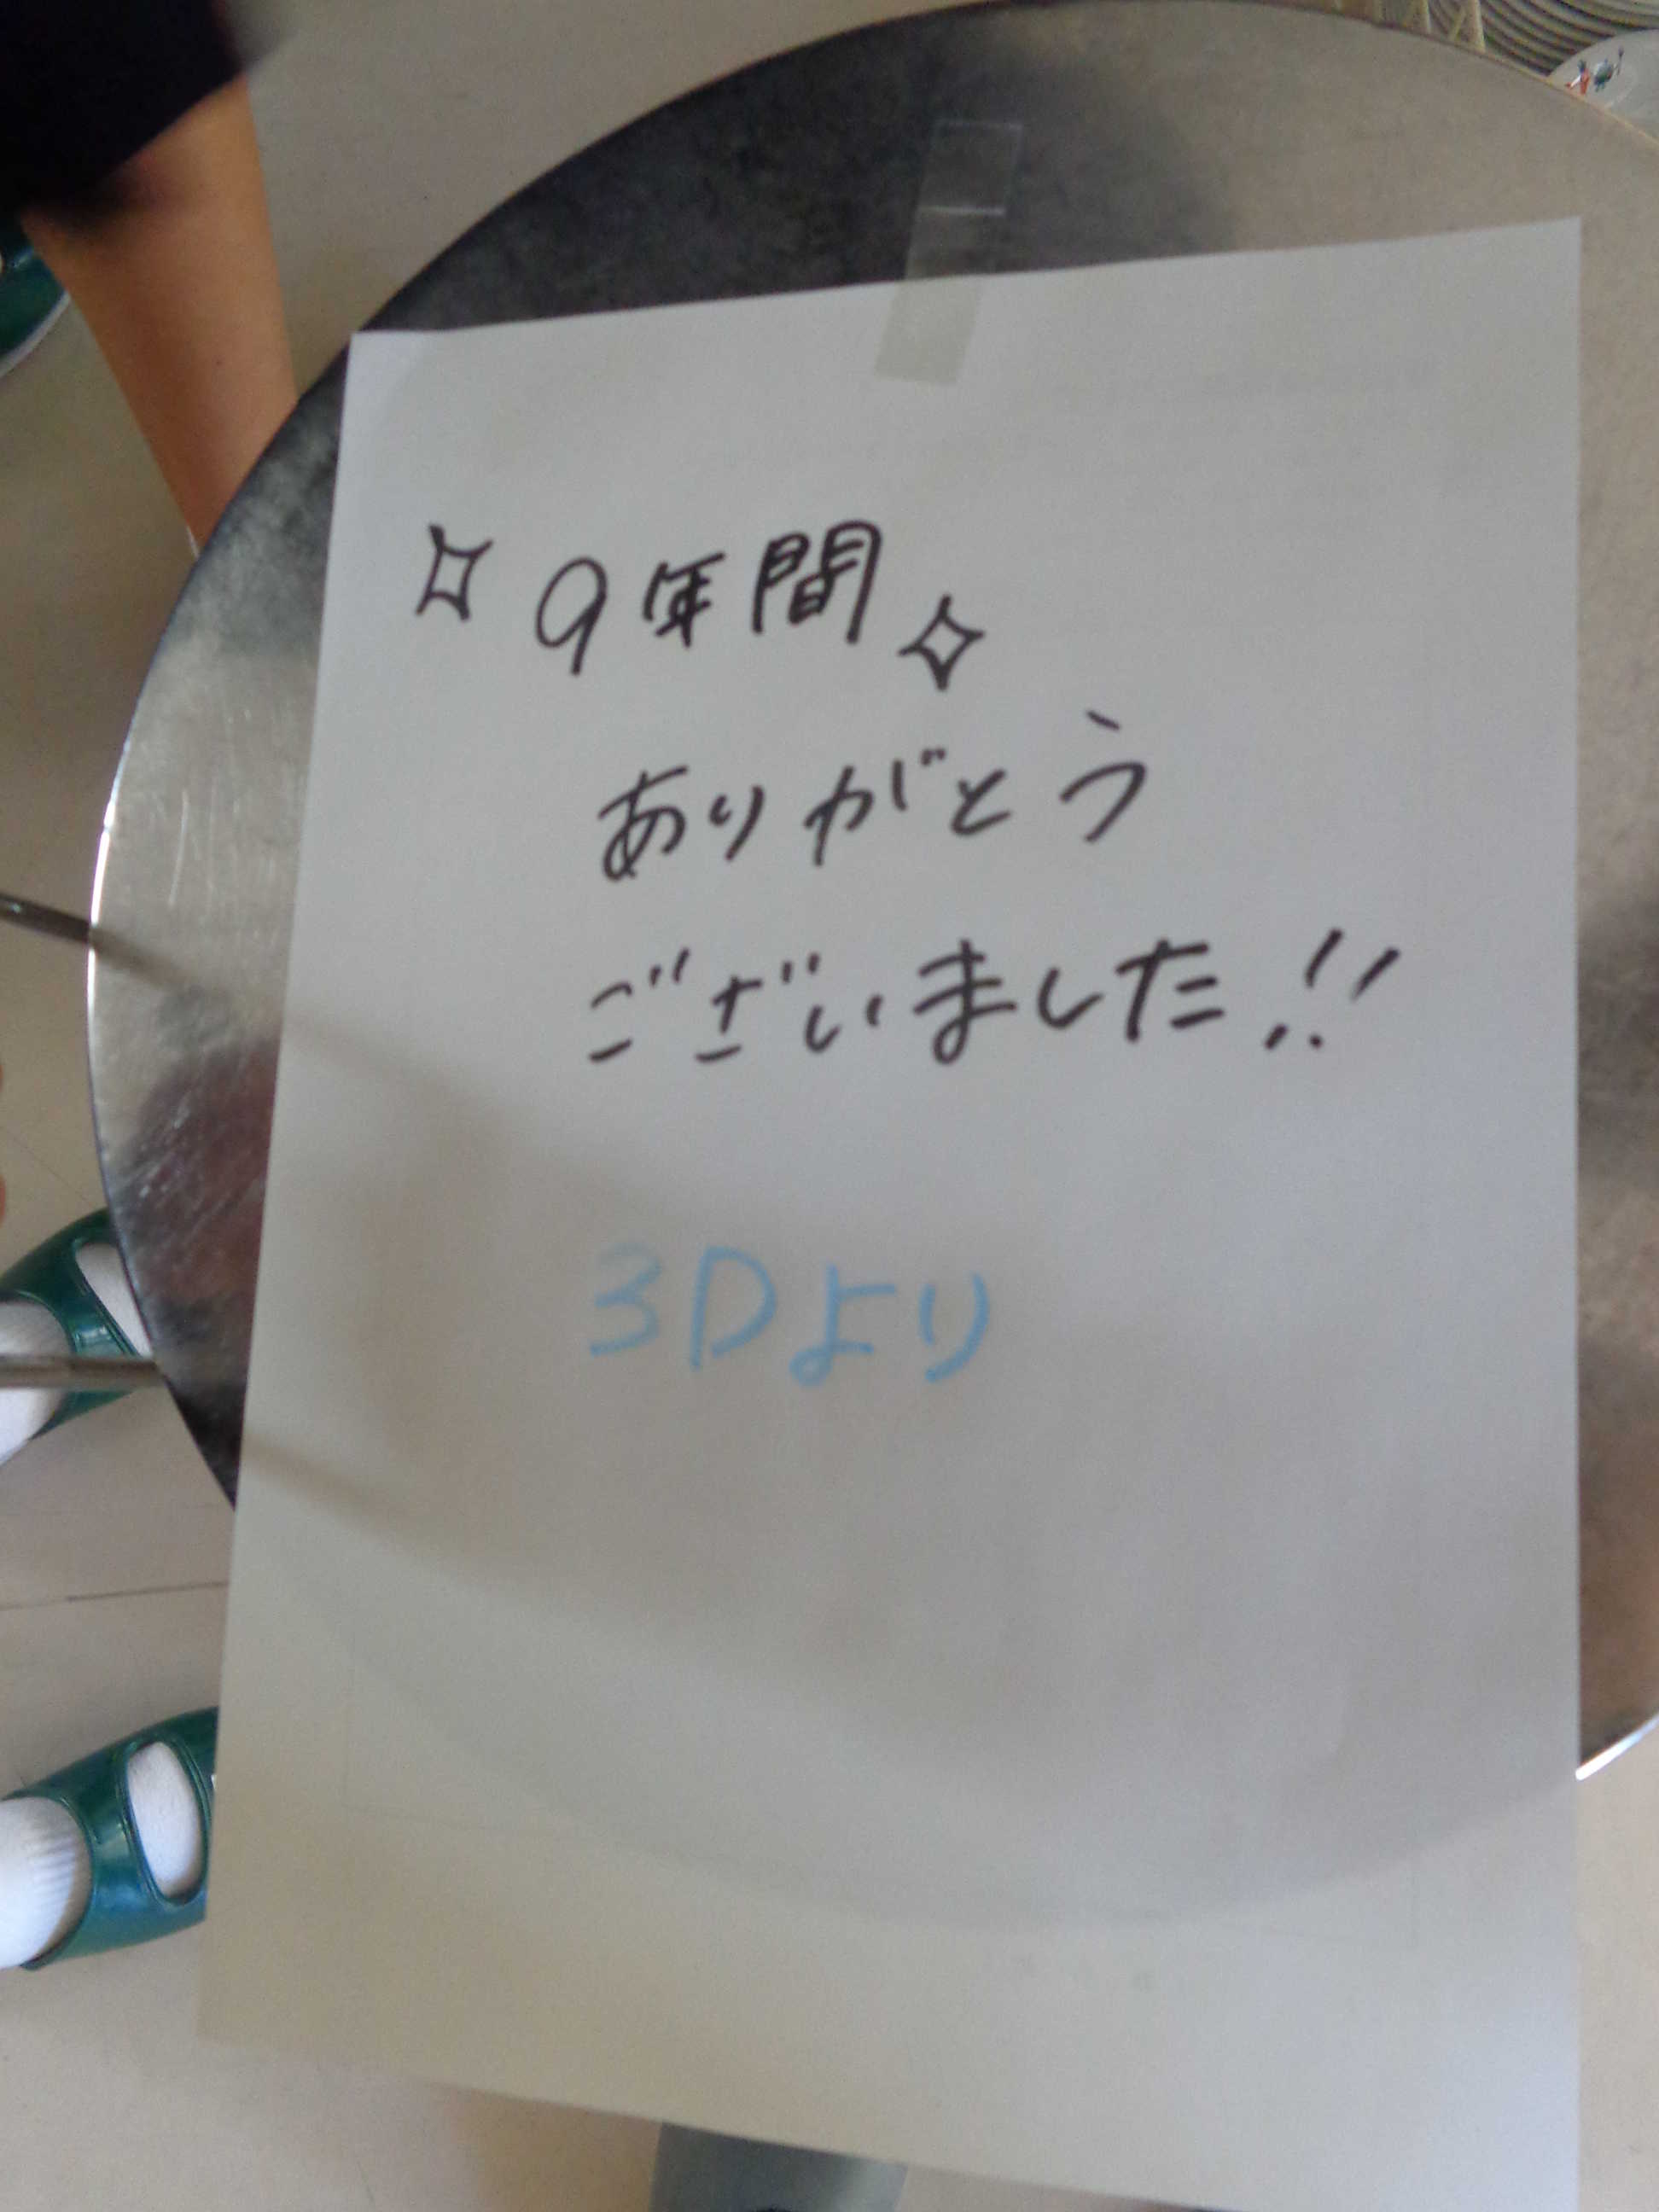 9年間
ありがとう
ございました!!
3Dより